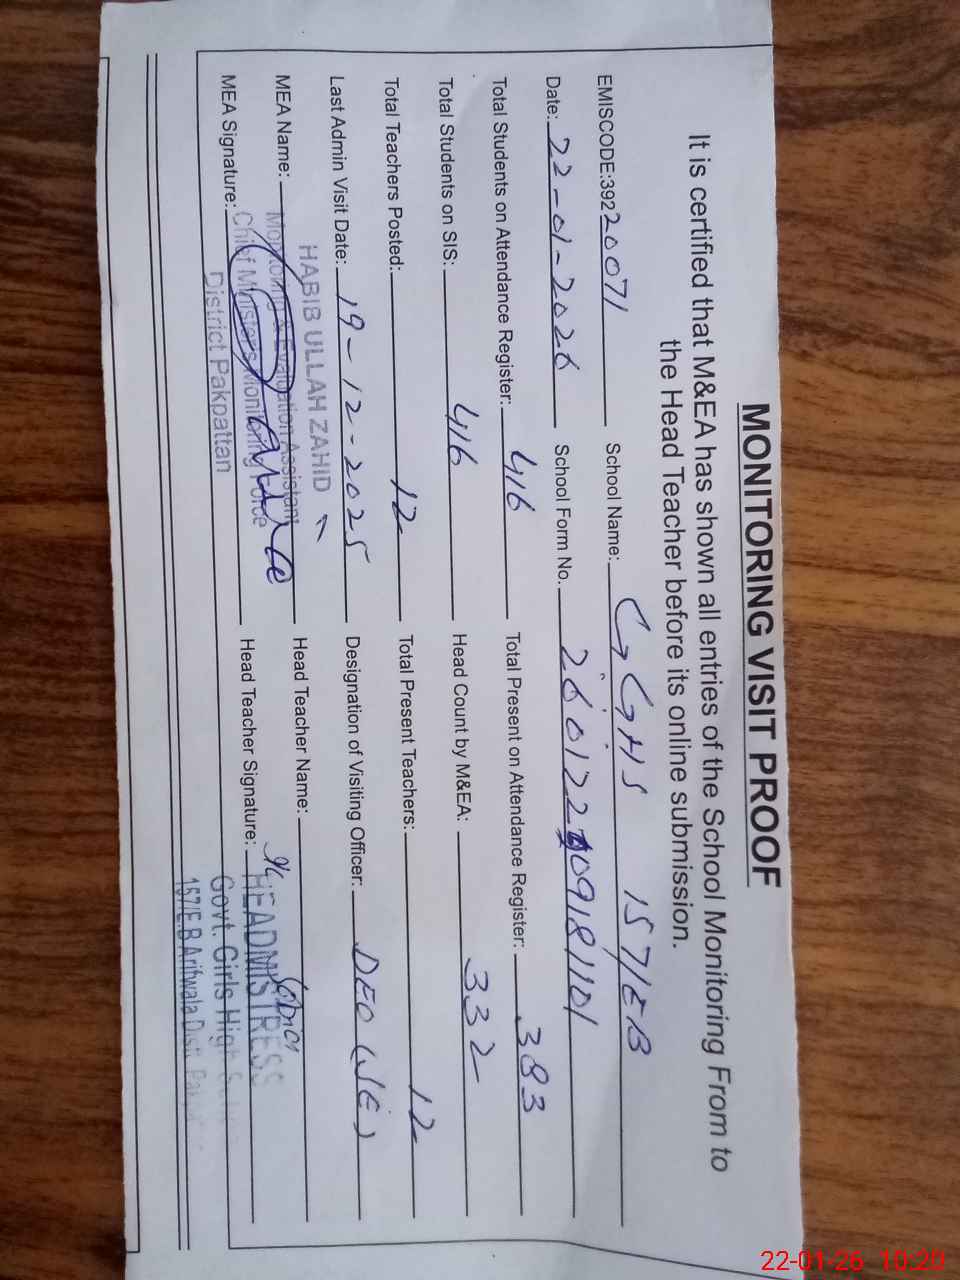 MONITORING VISIT PROOF
It is certified that M&EA has shown all entries of the School Monitoring From to
the Head Teacher before its online submission.
EMISCODE:39220071 School Name: GGHS 157/EB
Date: 22-01-2026 School Form No. 26012209181101
Total Students on Attendance Register: 416 Total Present on Attendance Register: 383
Total Students on SIS: 416 Head Count by M&EA: 332
Total Teachers Posted: 12 Total Present Teachers: 12
Last Admin Visit Date: 19-12-2025 Designation of Visiting Officer: DEO (WE)
HABIB ULLAH ZAHID
MEA Name: Head Teacher Name:
Monitoring & Evaluation Assistant
MEA Signature: Head Teacher Signature:
Chief Ministers Monitoring Force
District Pakpattan
HEADMISTRESS
Govt. Girls High
157/E.B Arifwala Distt.
22-01-26 10:20